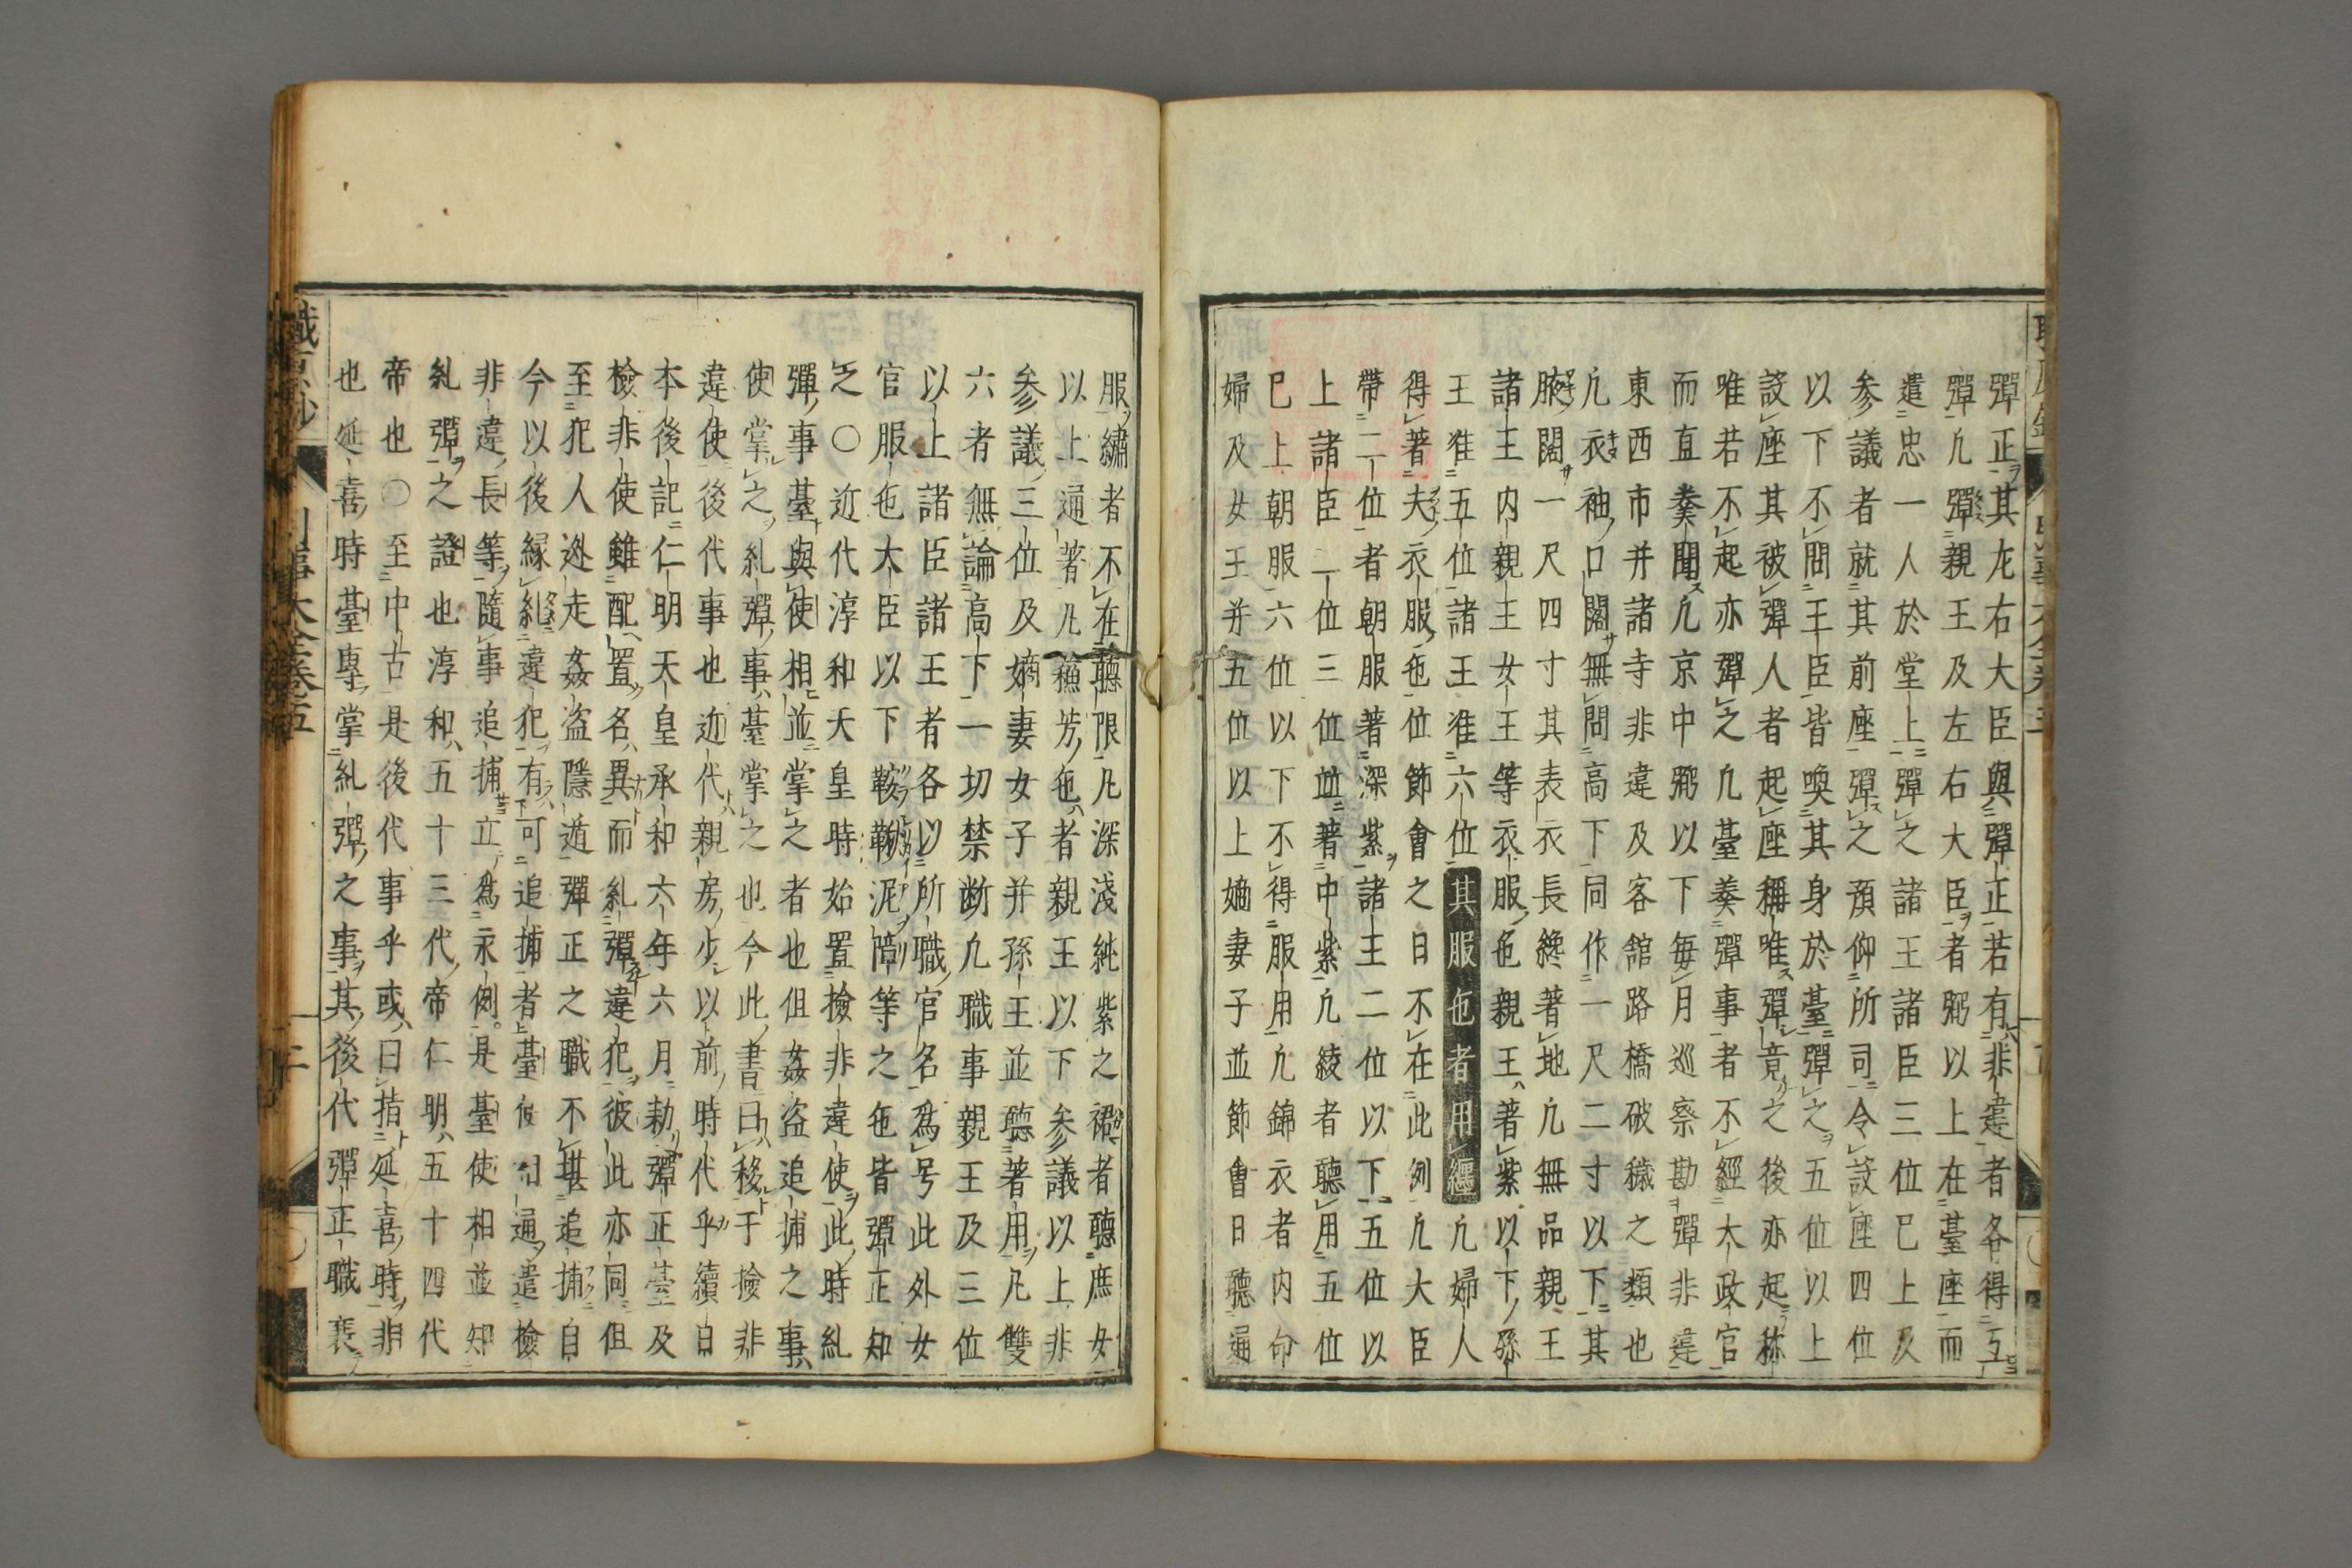 彈正其左右大臣與彈正若有非違者各得互
彈凢彈親王及左右大臣者弼以上在臺座而
遣忠一人於堂上彈之諸王諸臣三位已上及
参議者就其前座彈之預仰所司令設座四位
以下不問王臣皆喚其身於臺彈之五位以上
設座其被彈人者起座稱唯彈竟之後亦起称
唯若不起亦彈之凢臺奏彈事者不經太政官
而直奏聞凢京中弼以下毎月巡察勘彈非違
東西市并諸寺非違及客舘路橋破穢之類也
凢衣袖口闊無問高下同作一尺二寸以下其
腋闊一尺四寸其表衣長纔著地凢無品親王
諸王内親王女王等衣服色親王著紫以下孫
王准五位諸王准六位其服色者用纒凢婦人
得著夫衣服色位節會之日不在此例凢大臣
帶二位者朝服著深紫諸王二位以下五位以
上諸臣二位三位並著中紫凢綾者聽用五位
已上朝服六位以下不得服用凢錦衣者内命
婦及女王并五位以上嫡妻子並節會日聽通
服繡者不在聽限凢深淺純紫之裙者聽庶女
以上通著凢蘓芳色者親王以下参議以上非
参議三位及嫡妻女子并孫王並聽著用凢雙
六者無論高下一切禁断凢職事親王及三位
以上諸臣諸王者各以所職官名為号此外女
官服色大臣以下鞍鞦泥障等之色皆彈正知
之〇近代淳和天皇時始置撿非違使此時糺
彈事臺與使相並掌之者也但姦盗追捕之事
使掌之糺彈事臺掌之也今此書曰移于撿非
違使後代事也近代親房少以前時代乎續日
本後記仁明天皇承和六年六月勅彈正臺及
檢非使雖配置名異而糺彈違犯彼此亦同但
至犯人迯走姦盗隱遁彈正之職不堪追捕自
今以後緣糺違犯有可追捕者臺使相通遣檢
非違長等隨事追捕立為永例是臺使相並知
糺彈之證也淳和五十三代帝仁明五十四代
帝也〇至中古是後代事乎或曰指延喜時非
也延喜時臺專掌糺彈之事其後代彈正職衰